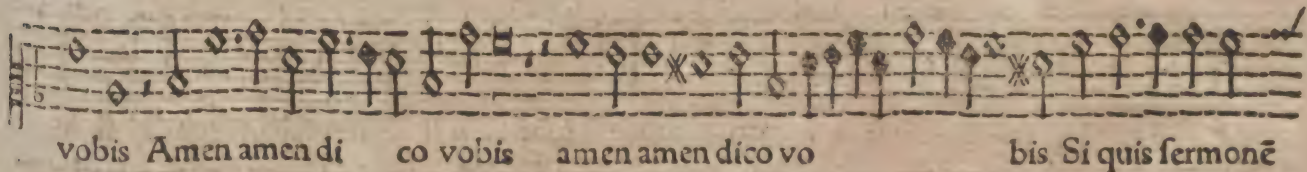 vobis Amen amen di co vobis amen amen dico vo bis Si quis ſermonē